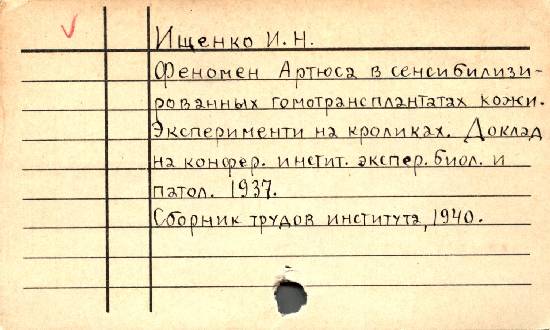 Ищенко И. Н.
Феномен Артюса в сенсибилизи-
рованных гомотрансплантатах кожи.
Эксперименти на кроликах. Доклад
на конфер. инстит. экспер. биол. и
патол. 1937.
Сборник трудов института, 1940.